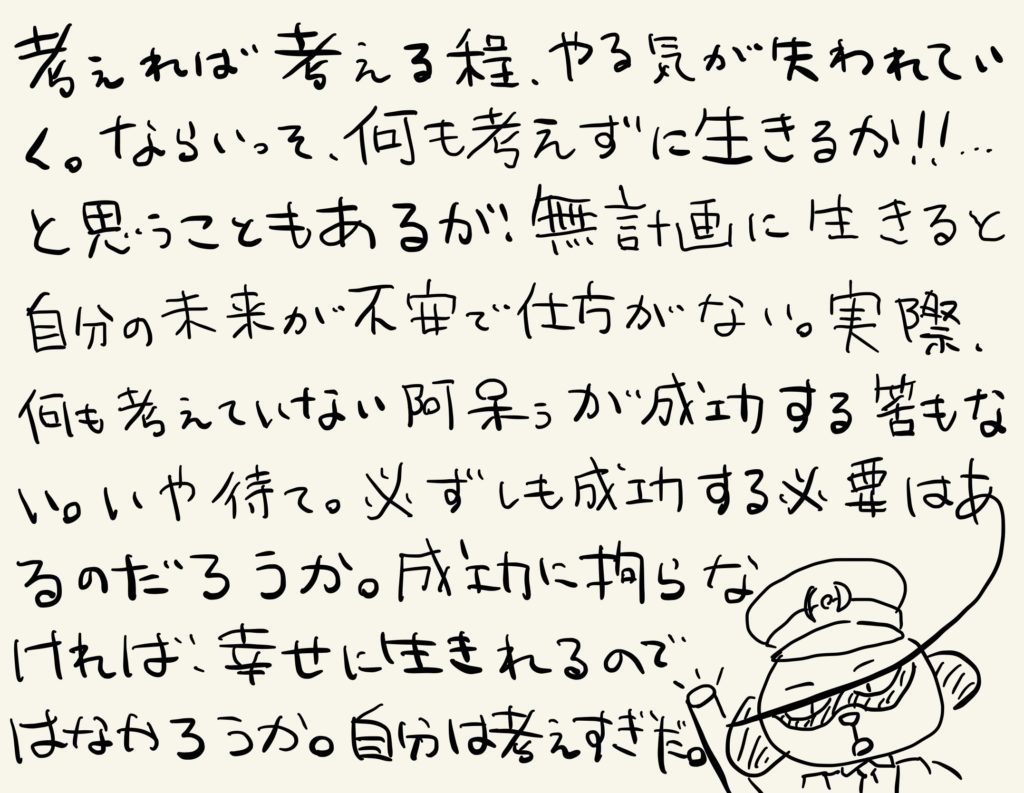 考えれば考える程、やる気が失われてい
く。ならいっそ、何も考えずに生きるか!!…
と思うこともあるが、無計画に生きると
自分の未来が不安で仕方がない。実際、
何も考えていない阿呆ぅが成功する筈もな
い。いや待て。必ずしも成功する必要はあ
るのだろうか。成功に拘らな
ければ、幸せに生きれるので
はなかろうか。自分は考えすぎだ。